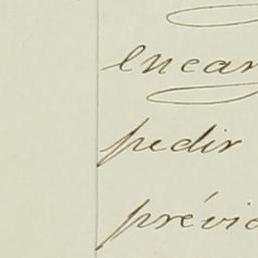 encar
pedir
prévio